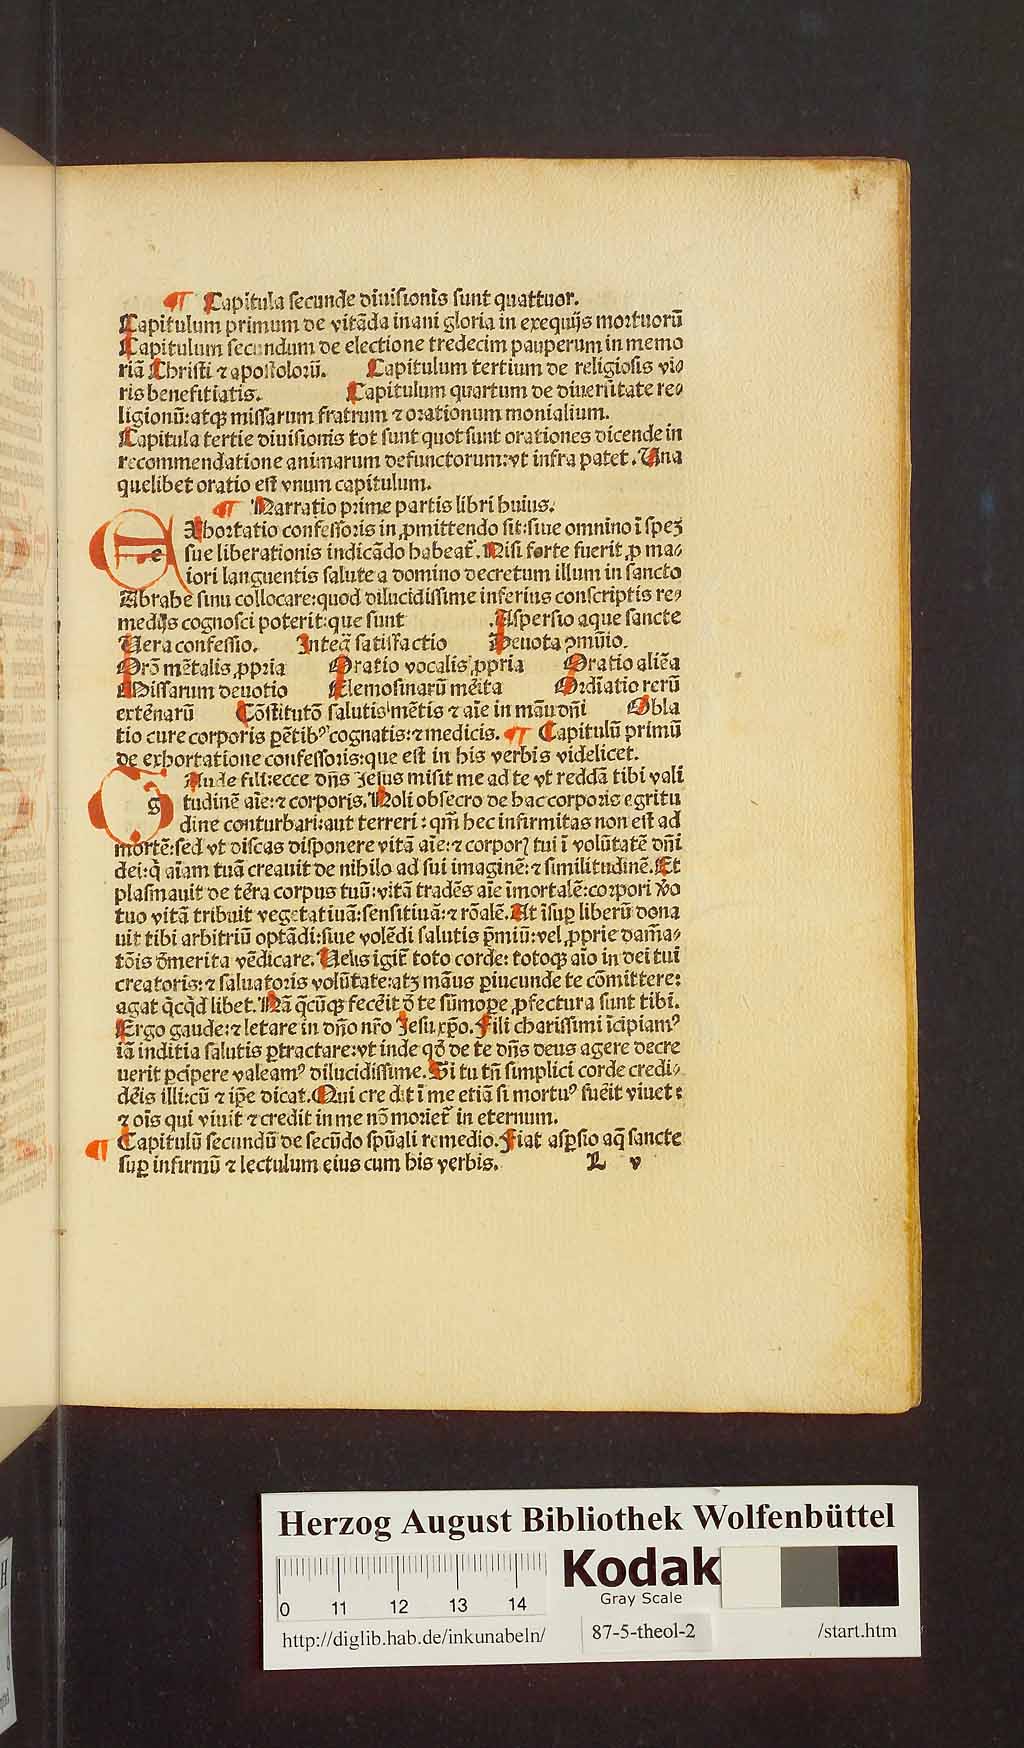 ¶ Capitula secunde diuisionis sunt quattuor.
Capitulum primum de vitāda inani gloria in exequijs mortuorū
Capitulum secundum de electione tredecim pauperum in memo
riā Christi ⁊ apostolorū. Capitulum tertium de religiosis vi⸗
ris benefitiatis. Capitulum quartum de diuersitate re⸗
ligionū:atqꝫ missarum fratrum ⁊ orationum monialium.
Capitula tertie diuisionis tot sunt quot sunt orationes dicende in
recommendatione animarum defunctorum:vt infra patet. Una
quelibet oratio est vnum capitulum.
¶ Narratio prime partis libri huius.
e Xhortatio confessoris in ꝓmittendo sit:siue omnino ī speꝫ
sue liberationis indicādo habeat̄. Nisi forte fuerit ꝓ ma⸗
iori languentis salute a domino decretum illum in sancto
Abrahe sinu collocare:quod dilucidissime inferius conscriptis re⸗
medijs cognosci poterit:que sunt .Aspersio aque sancte
Uera confessio. Integꝗ̄ satisfactio Deuota ꝯmūio.
Orō mētalis ꝓpria Oratio vocalis ꝓpria Oratio aliēa
Missarum deuotio Elemosinarū mēita Ordīatio rerū
extēnarū Cōstitutō salutis mētis ⁊ aīe in māu dn̄i Obla
tio cure corporis ꝑētibꝰ cognatis:⁊ medicis. ¶ Capitulū primū
de exhortatione confessoris:que est in his verbis videlicet.
g Aude fili:ecce dn̄s Jesus misit me ad te vt reddā tibi vali
tudinē aīe:⁊ corporis. Noli obsecro de hac corporis egritu
dine conturbari:aut terreri: qm̄ hec infirmitas non est ad
mortē:sed vt discas disponere vitā aīe:⁊ corporꝭ tui ī volūtatē dn̄i
dei:q̇ aīam tuā creauit de nihilo ad sui imaginē:⁊ similitudinē. Et
plasmauit de tēra corpus tuū:vitā tradēs aīe īmortalē:corpori v̄o
tuo vitā tribuit vegetatiuā:sensitiuā:⁊ rōalē. At īsuꝑ liberū dona
uit tibi arbitriū optādi:siue volēdi salutis p̄miū:vel ꝓprie dam̄a⸗
tōis d̄merita vēdicare. Uelis igit̄ toto corde: totoqꝫ aīo in dei tui
creatoris:⁊ saluatoris volūtate:atꝫ māus ꝑiucunde te cōmittere:
agat q̄cq̇d libet. Nā q̄cūqꝫ fecēit d̄ te sūmoꝑe ꝓfectura sunt tibi.
Ergo gaude:⁊ letare in dn̄o nr̄o Jesu xp̄o. Fili charissimi īcipiamꝰ
iā inditia salutis ꝑtractare:vt inde qd̄ de te dn̄s deus agere decre
uerit ꝑcipere valeamꝰ dilucidissime. Si tu tn̄ simplici corde credi⸗
dēis illi:cū ⁊ ip̄e dicat. Qui credit ī me etiā si mortuꝰ fuēit viuet:
⁊ oīs qui viuit ⁊ credit in me nō moriet̄ in eternum.
¶ Capitulū secundū de secūdo spūali remedio. Fiat asꝑsio aq̄ sancte
suꝑ infirmū ⁊ lectulum eius cum his verbis. L v
Herzog August Bibliothek Wolfenbüttel
Kodak
Gray Scale
0 11 12 13 14
http://diglib.hab.de/inkunabeln/ 87-5-theol-2 /start.htm